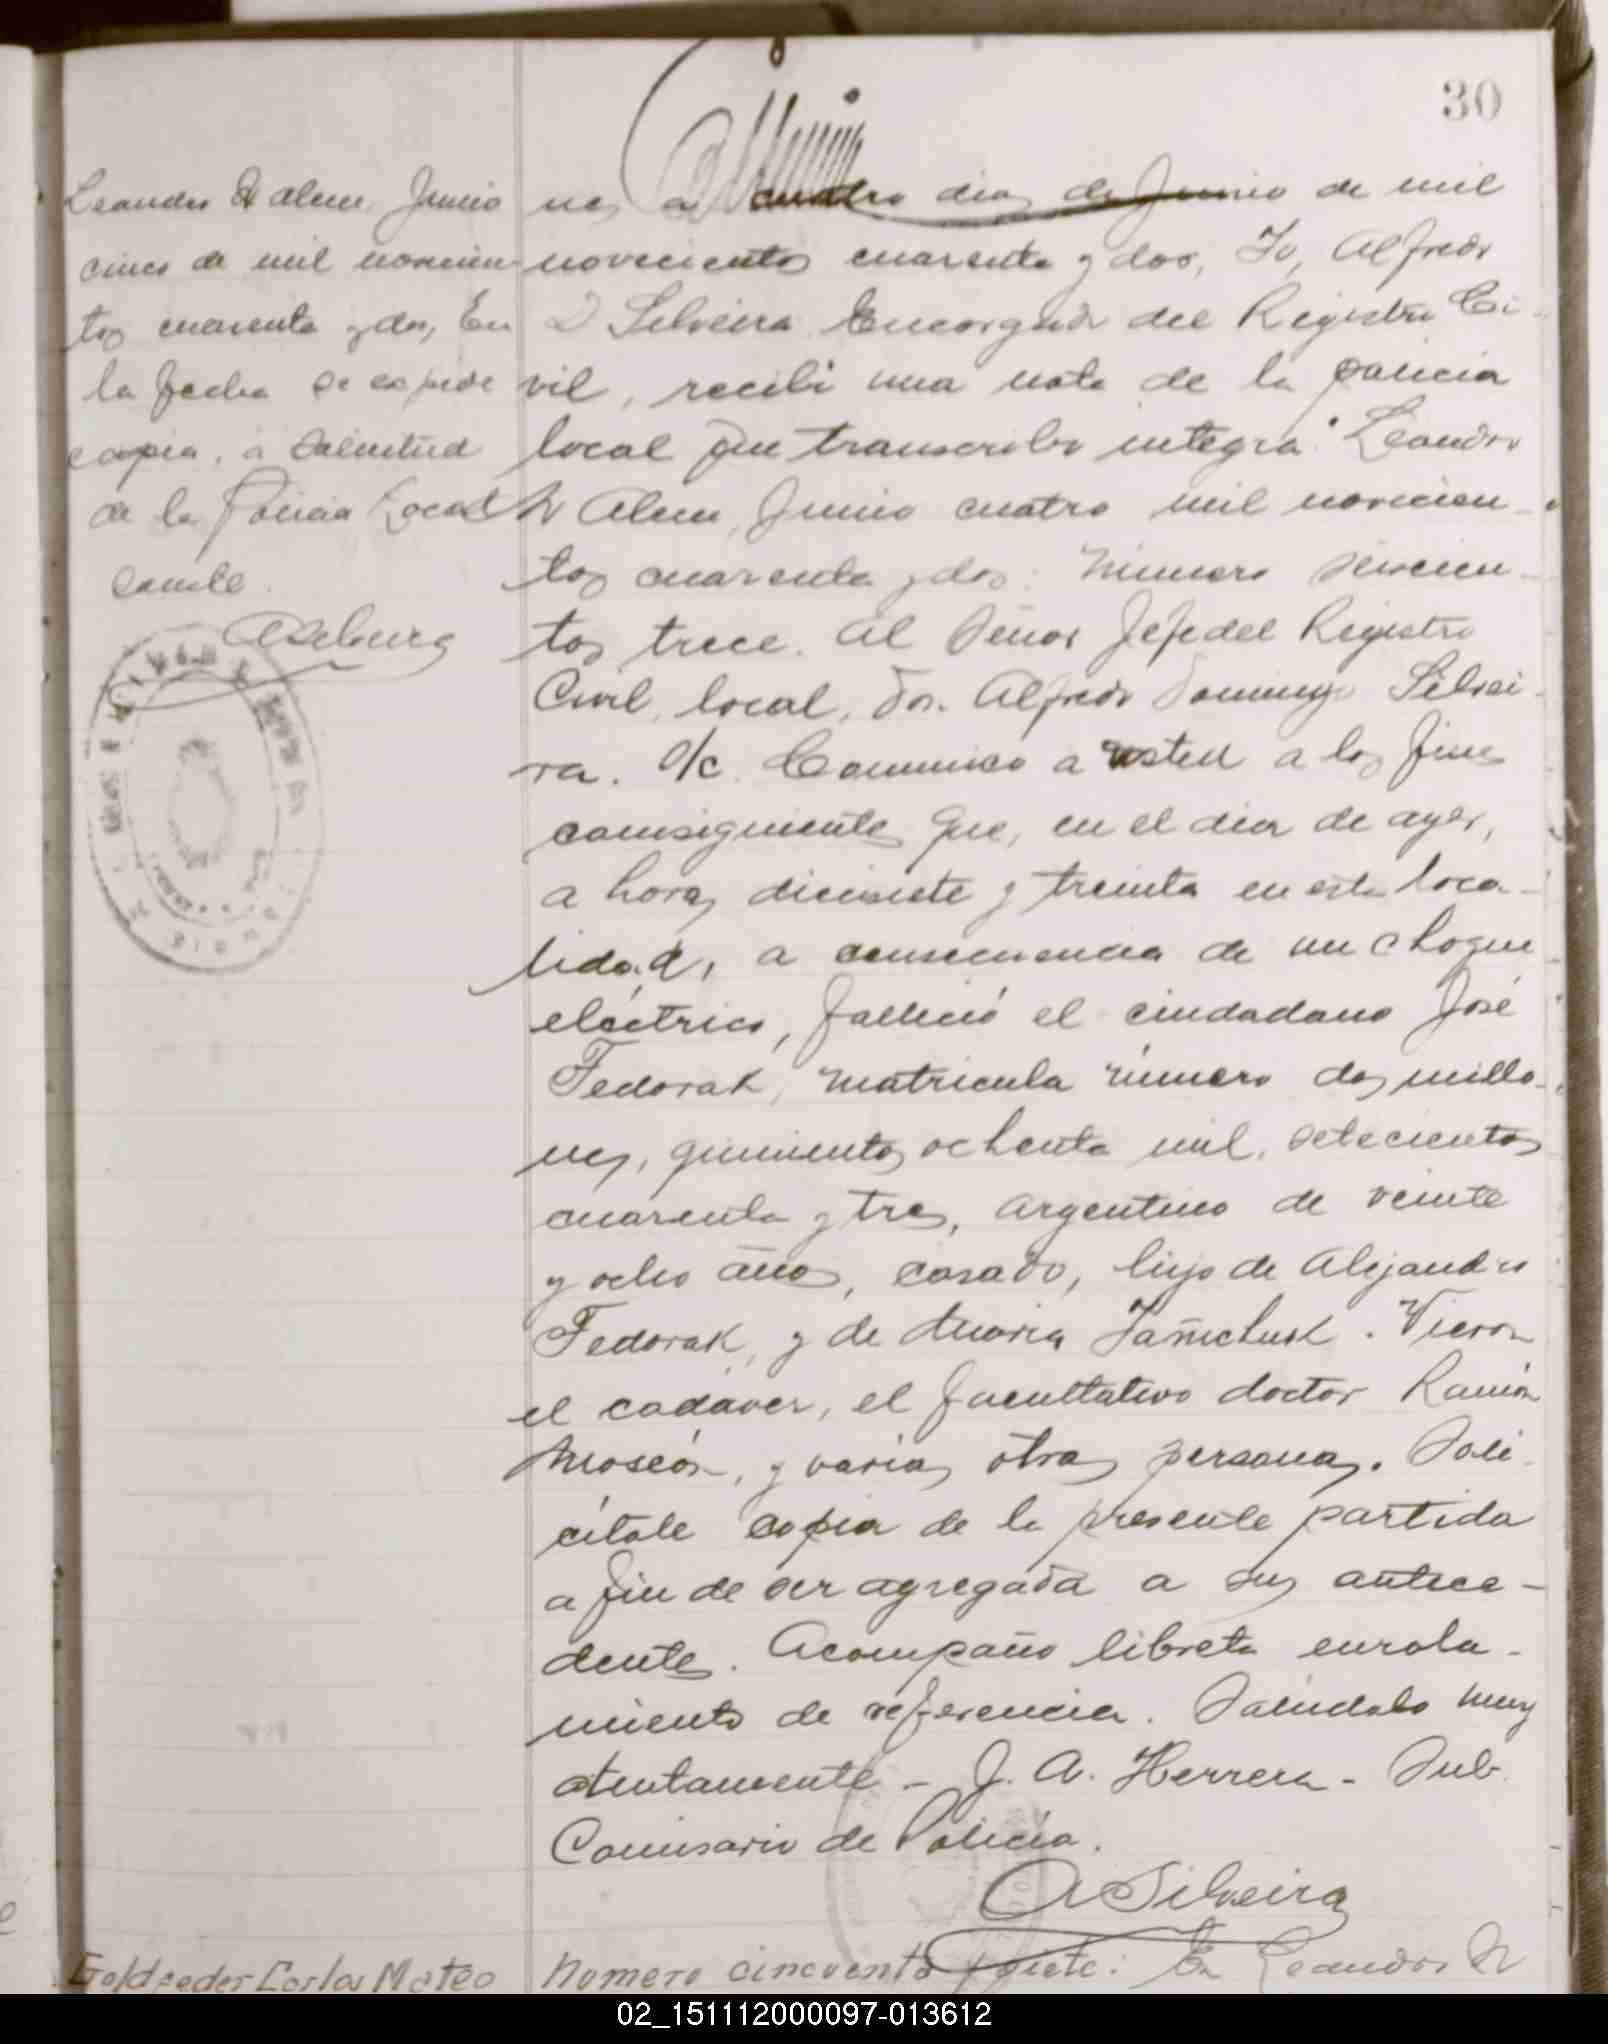 30
Leandro N alem, Junio
cinco de mil novecien-
tos cuarenta y dos, En
la fecha se expide
copia, a solicitud
de la Policia Local
Conste.
ASilveira
nes a cuatro dias de Junio de mil
novecientos cuarenta y dos, Yo, Alfredo
D Silveira Encargado del Registro Ci-
vil, recibi una nota de la policia
local que transcribo integra: "Leandro
N Alem, Junio cuatro mil novecien-
tos cuarenta y dos: Número seiscien-
tos trece. Al Señor Jefe del Registro
Civil, local, Dn. Alfredo Domingo Silvei-
ra. S/c. Comunico a usted a los fines
consiguientes que, en el dia de ayer,
a horas diecisiete y treinta en esta loca-
lidad, a consecuencia de un choque
eléctrico, falleció el ciudadano José
Fedorak, matricula número dos millo-
nes, quinientos ochenta mil, setecientos
cuarenta y tres, argentino de veinte
y ocho años, casado, hijo de Alejandro
Fedorak, y de Maria . Vieron
el cadáver, el facultativo doctor Ramón
y varias otras personas. Soli-
cítole copia de la presente partida
a fin de ser agregada a sus antece-
dentes. Acompaño libreta enrola-
miento de referencia. Salúdolo muy
atentamente - J. A. Herrera - Sub
Comisario de Policía.
ASilveira
Carlos Mateo
Numero cincuenta y siete: En Leandro N
02_151112000097-013612